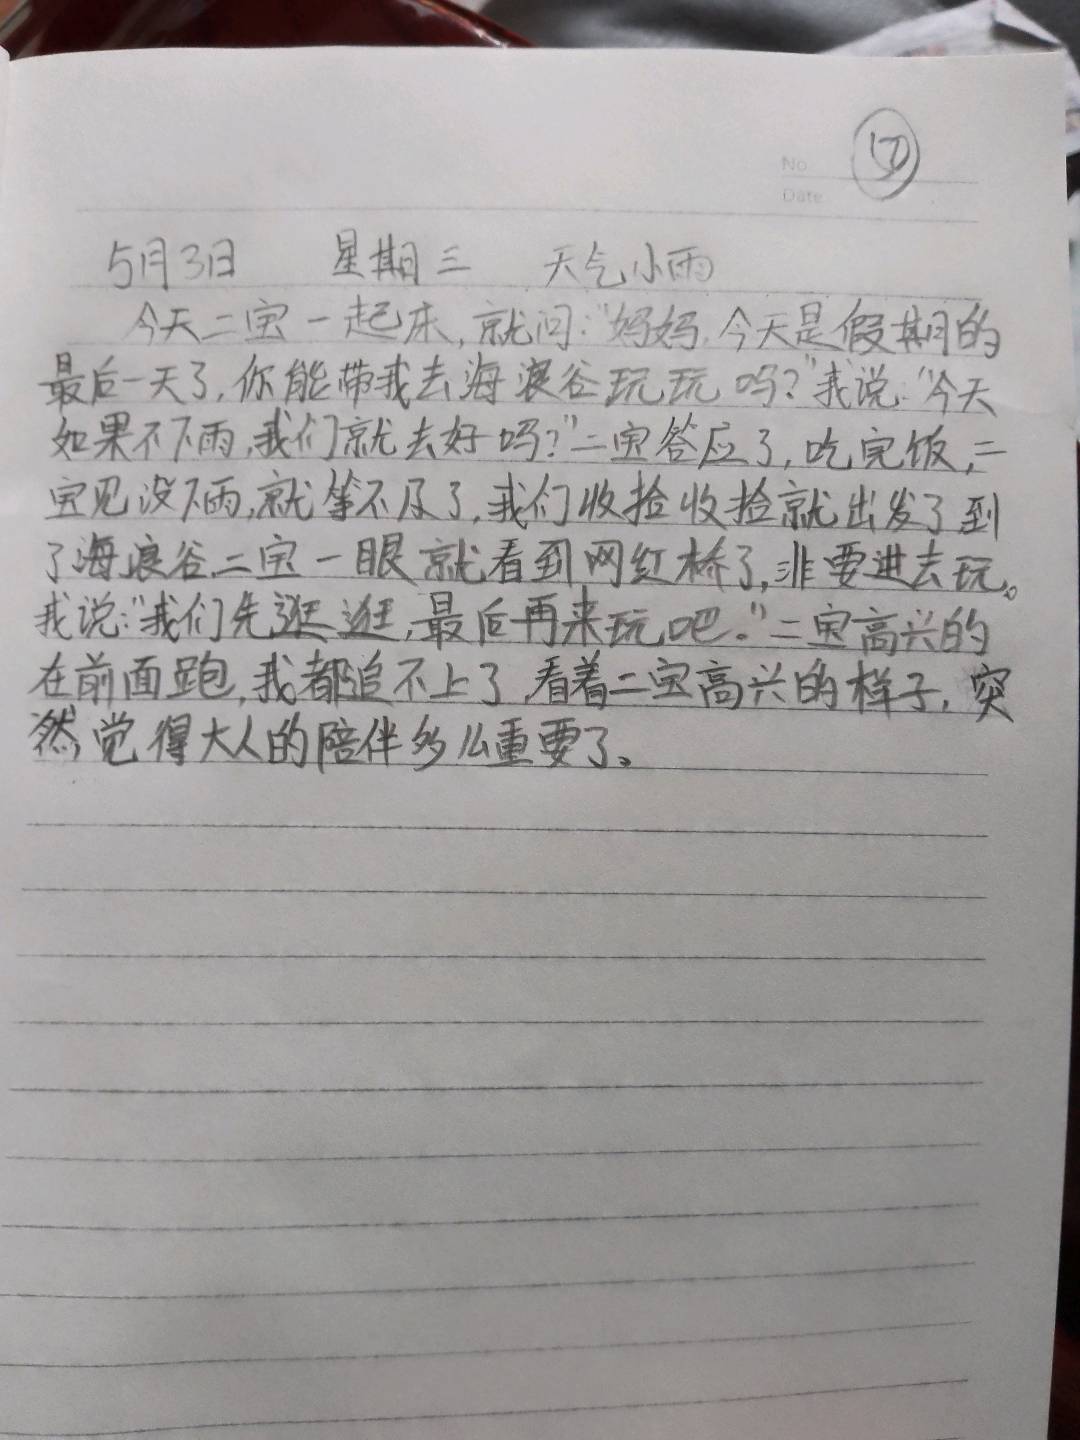 No
Date
5月3日 星期三 天气小雨
今天二宝一起床,就问:"妈妈,今天是假期的
最后一天了,你能带我去海浪谷玩玩吗?"我说:"今天
如果不下雨,我们就去好吗?"二宝答应了,吃完饭,二
宝见没下雨,就等不及了,我们收捡收捡就出发了到
了海浪谷二宝一眼就看到网红桥了,非要进去玩。
我说:"我们先逛逛,最后再来玩吧。"二宝高兴的
在前面跑,我都追不上了,看着二宝高兴的样子,突
然觉得大人的陪伴多么重要了。